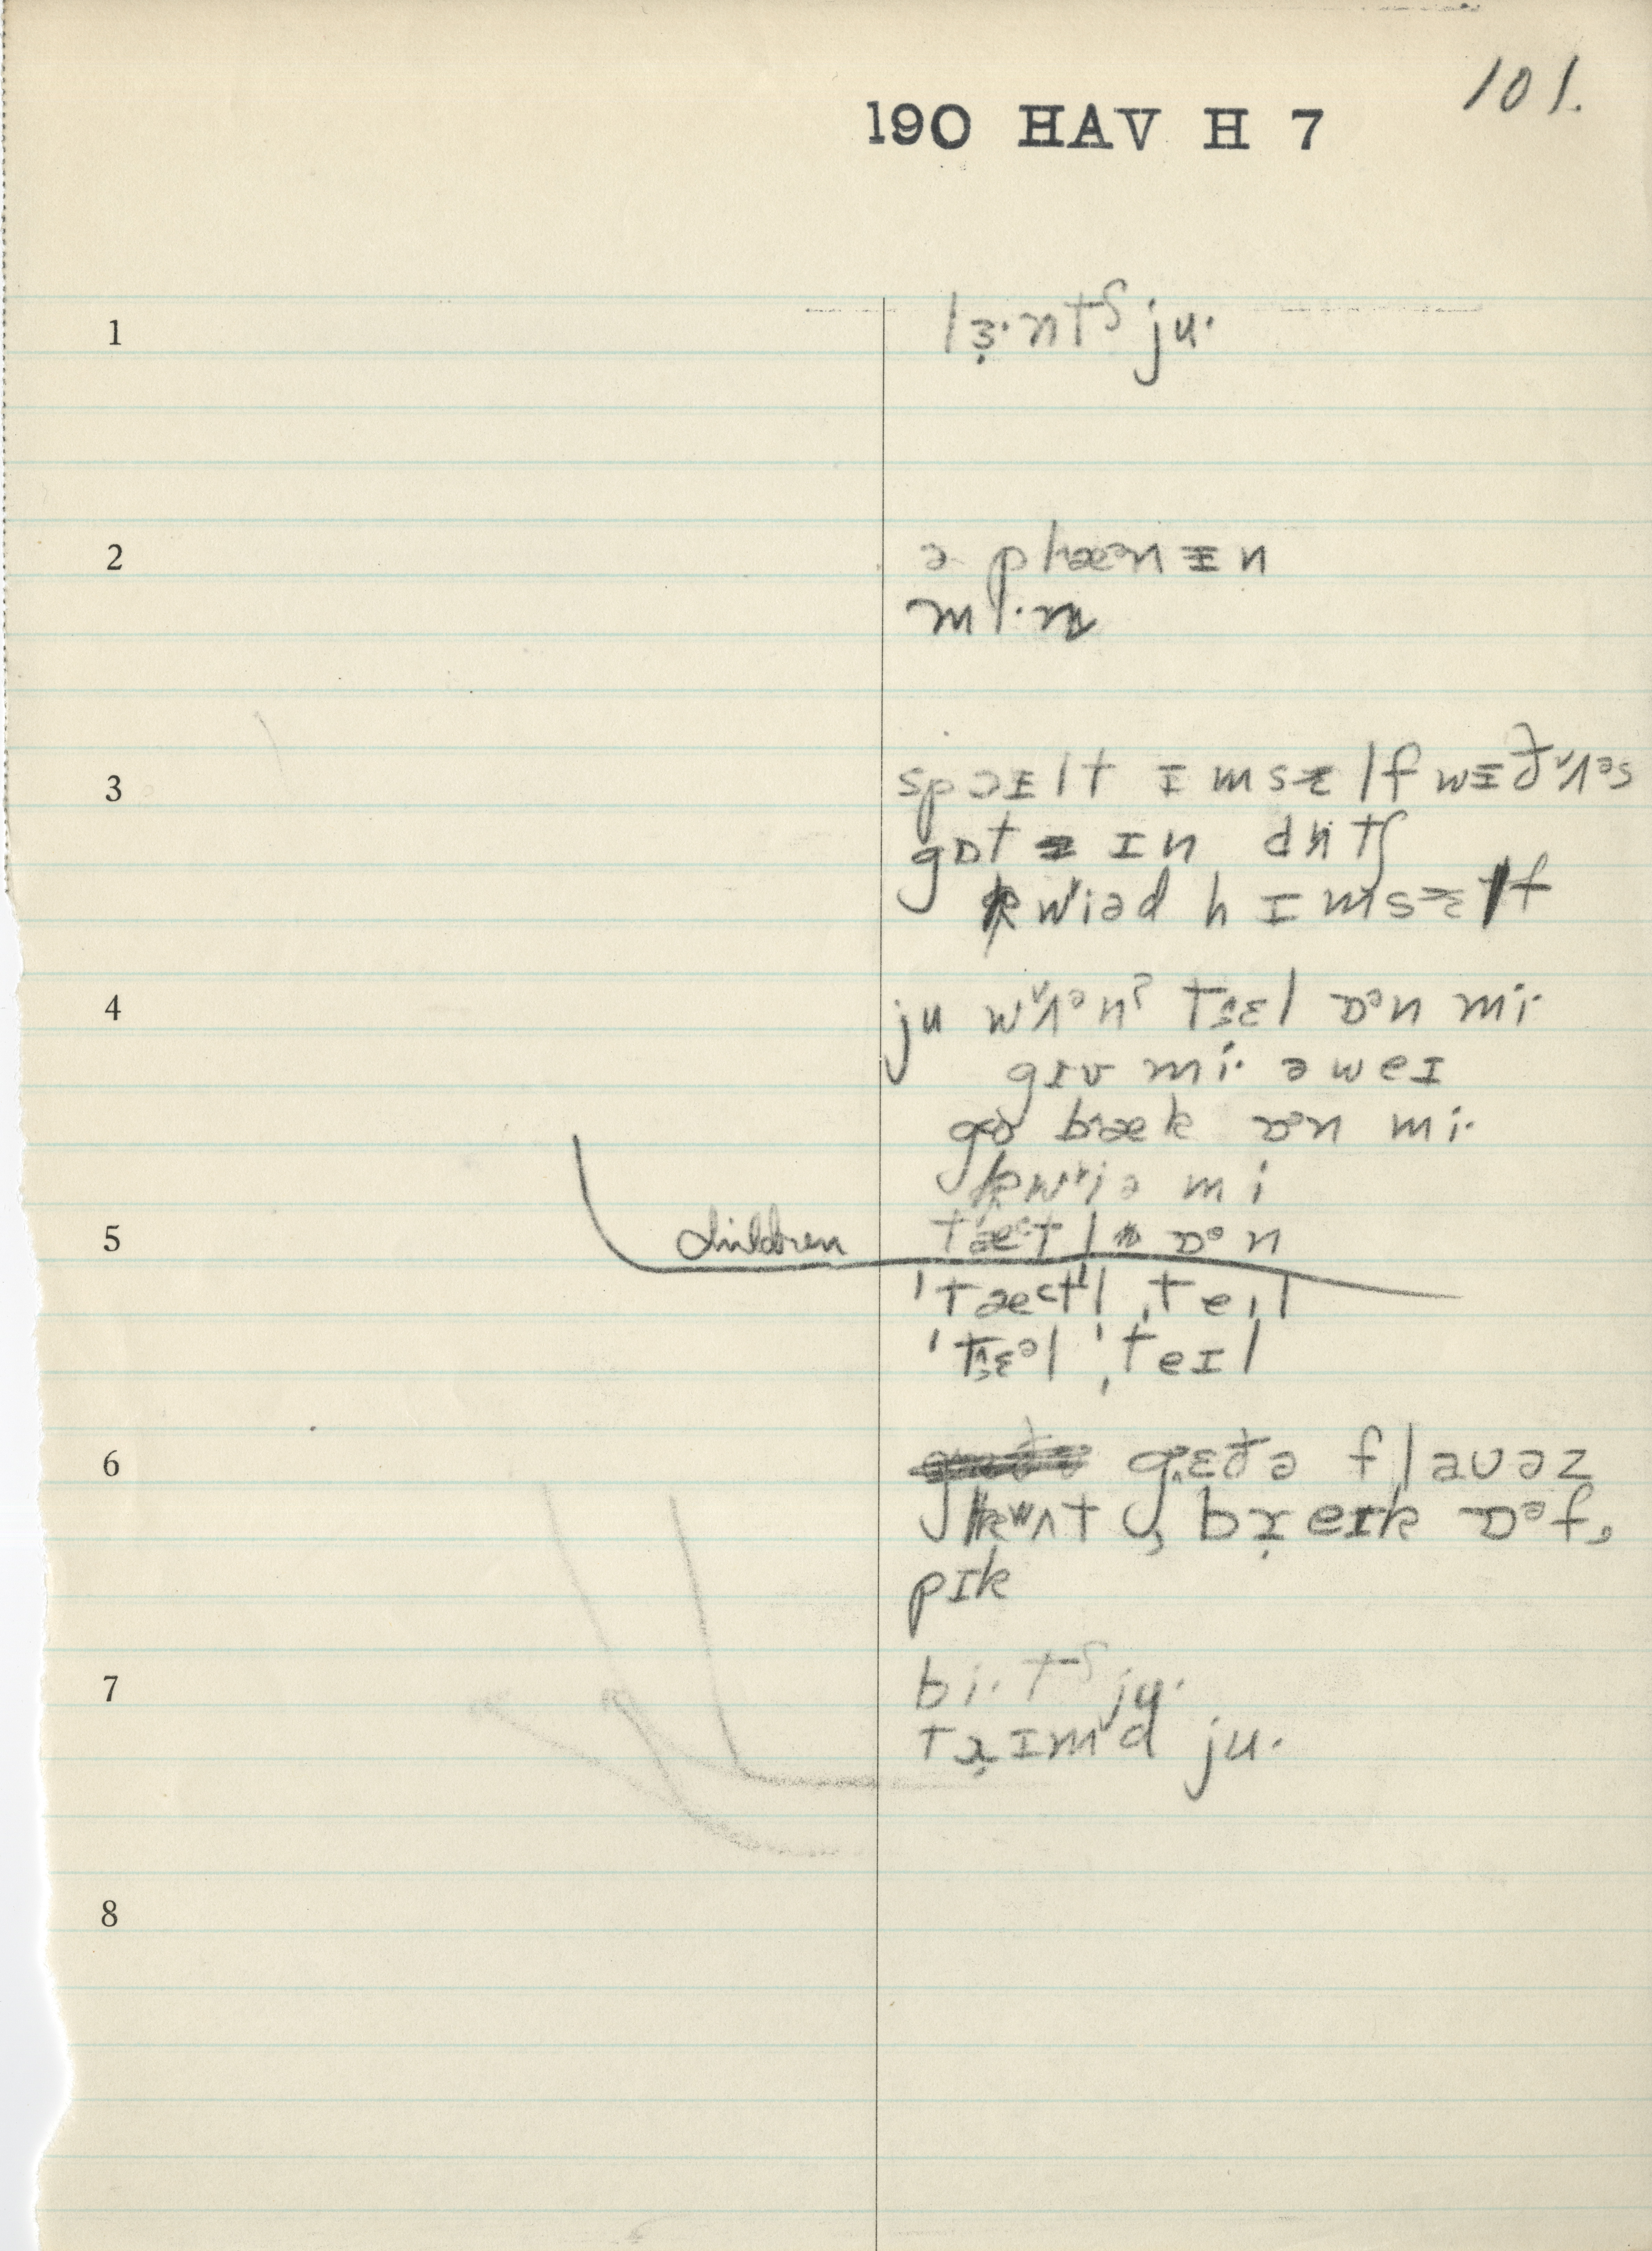 101.
190 HAV H 7
1 lɜ̣·ntʃ ju·
2 ə plæᵊn ɪ n
mi·n
3 spɔɪlt ɪmsɛlf wɪð ʌᵊs
gɒt ɪn dʌtʃ
kwiəd hɪmsɛlf
4 ju wʌᵊnʔ tɛl ɒᵊn mi·
gɪv mi· əweɪ
go bæk ɒᵊn mi·
kwiə mi
5 children tætl ɒᵊn
ˈtætl ˌteɪl
ˈtɛᵊl ˌteɪl
6 gɛðə flaʊəz
kʌt, bṛeɪk ɒᵊf,
pɪk
7 bi·tʃ ju·
tṛɪmd ju·
8